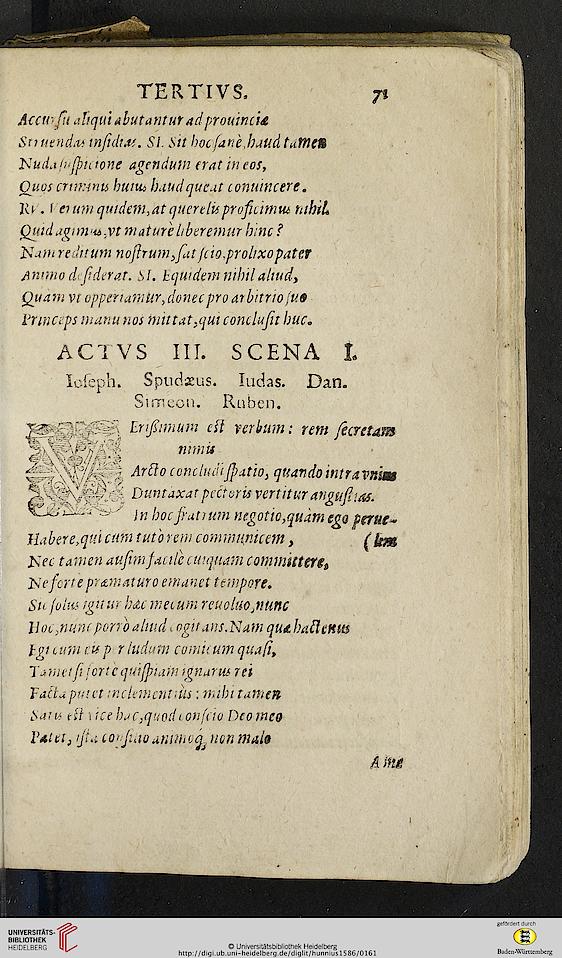 TERTIVS. 71
Accursu aliqui abutantur ad prouinciæ
Struendas insidias. SI. Sit hoc sanè, haud tamen
Nuda suspicione agendum erat in eos,
Quos criminis huius haud queat conuincere.
RV. Verum quidem, at querelis proficimus nihil.
Quid agimus, vt maturè liberemur hinc?
Nam reditum nostrum, sat scio, prolixo pater
Animo desiderat. SI. Equidem nihil aliud,
Quàm vt opperiamur, donec pro arbitrio suo
Princeps manu nos mittat, qui conclusit huc.
ACTVS III. SCENA I.
Ioseph. Spudæus. Iudas. Dan.
Simeon. Ruben.
VErißimum est verbum: rem secretam
nimis
Arcto concludi spatio, quando intra vnius
Duntaxat pectoris vertitur angustias.
In hoc fratrum negotio, quàm ego perue-
Habere, qui cum tutò rem communicem, (lim
Nec tamen ausim facilè cuiquam committere,
Ne forte præmaturo emanet tempore.
Sic solus igitur hæc mecum reuoluo, nunc
Hoc, nunc porrò aliud cogitans. Nam quæ hactenus
Egi cum eis per ludum comicum quasi,
Tametsi fortè quispiam ignarus rei
Facta putet inclementiùs: mihi tamen
Satis est vice hac, quod conscio Deo meo
Patet, ista consilio animoq́; non malo
A me
UNIVERSITÄTS-
BIBLIOTHEK
HEIDELBERG
© Universitätsbibliothek Heidelberg
http://digi.ub.uni-heidelberg.de/diglit/hunnius1586/0161
gefördert durch
Baden-Württemberg